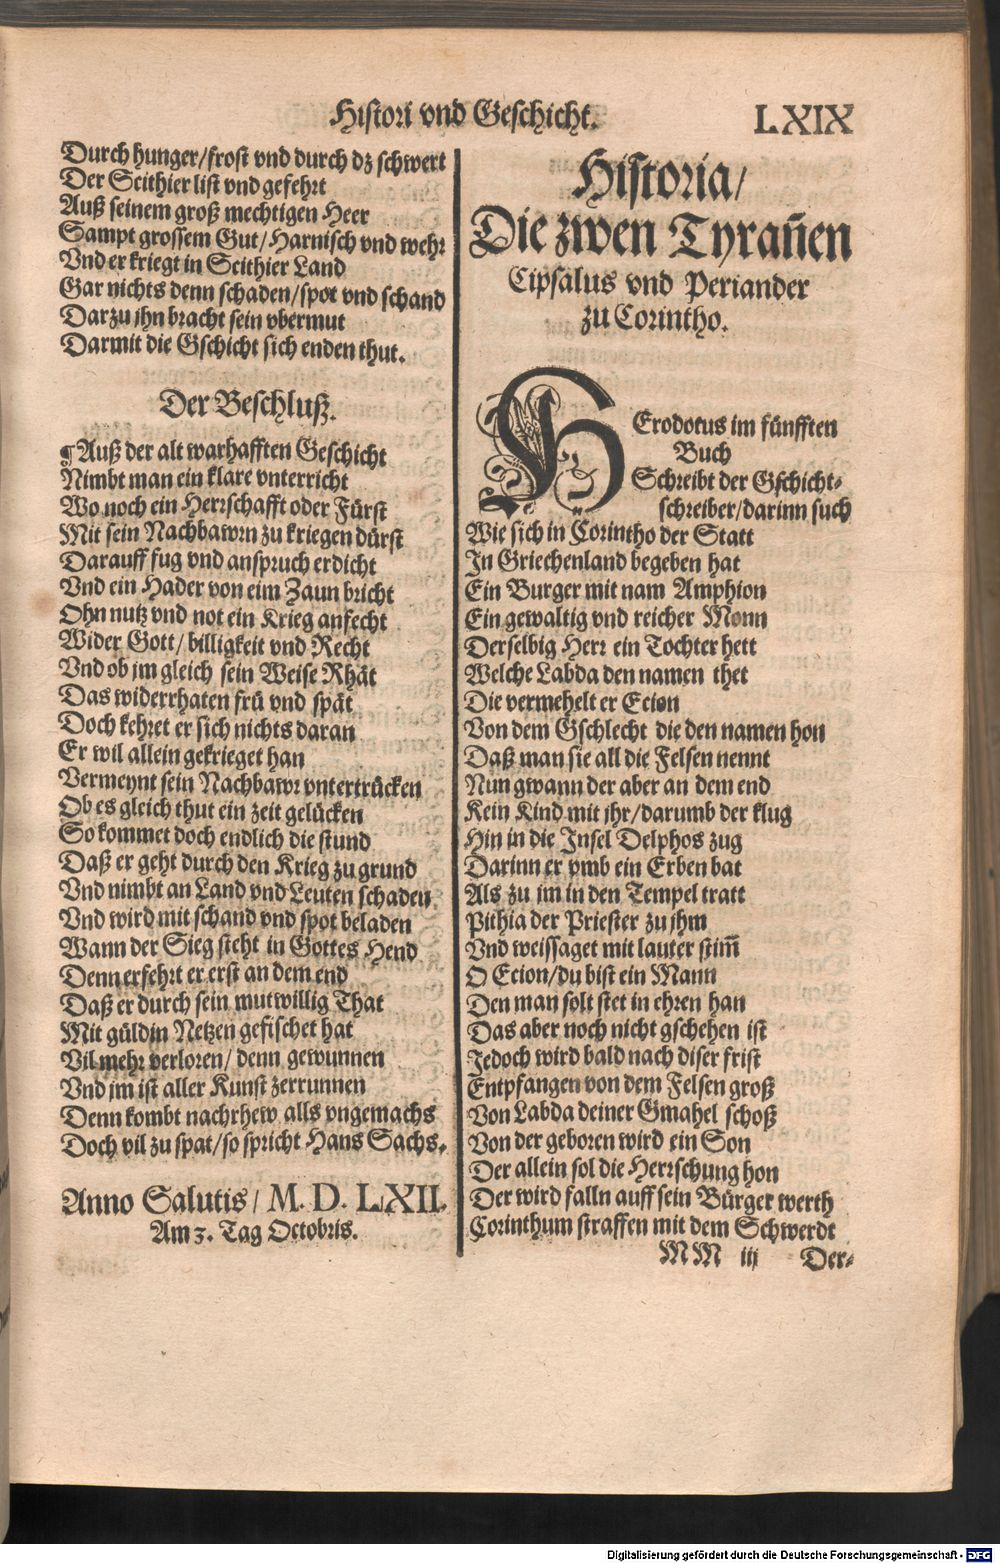 Histori vnd Geschicht. LXIX
Durch hunger/frost vnd durch dz schwert
Der Scithier list vnd gefehrt
Auß seinem groß mechtigen Heer
Sampt grossem Gut/Harnisch vnd wehr
Vnd er kriegt in Scithier Land
Gar nichts denn schaden/spot vnd schand
Darzu jhn bracht sein vbermut
Darmit die Gschicht sich enden thut.
Der Beschluß.
¶Auß der alt warhafften Geschicht
Nimbt man ein klare vnterricht
Wo noch ein Herrschafft oder Fürst
Mit sein Nachbawrn zu kriegen dürst
Darauff fug vnd anspruch erdicht
Vnd ein Hader von eim Zaun bricht
Ohn nutz vnd not ein Krieg anfecht
Wider Gott/billigkeit vnd Recht
Vnd ob jm gleich sein Weise Rhät
Das widerrhaten frü vnd spät
Doch kehret er sich nichts daran
Er wil allein gekrieget han
Vermeynt sein Nachbawr vntertrücken
Ob es gleich thut ein zeit gelücken
So kommet doch endlich die stund
Daß er geht durch den Krieg zu grund
Vnd nimbt an Land vnd Leuten schaden
Vnd wird mit schand vnd spot beladen
Wann der Sieg steht in Gottes Hend
Denn erfehrt er erst an dem end
Daß er durch sein mutwillig That
Mit güldin Netzen gefischet hat
Vil mehr verloren/denn gewunnen
Vnd jm ist aller Kunst zerrunnen
Denn kombt nachrhew alls vngemachs
Doch vil zu spat/so spricht Hans Sachs.
Anno Salutis/M. D. LXII.
Am 3. Tag Octobris.
Historia/
Die zwen Tyrañen
Cipsalus vnd Periander
zu Corintho.
HErodotus im fünfften
Buch
Schreibt der Gschicht-
schreiber/darinn such
Wie sich in Corintho der Statt
In Griechenland begeben hat
Ein Burger mit nam Amphion
Ein gewaltig vnd reicher Monn
Derselbig Herr ein Tochter hett
Welche Labda den namen thet
Die vermehelt er Ecion
Von dem Gschlecht die den namen hon
Daß man sie all die Felsen nennt
Nun gwann der aber an dem end
Kein Kind mit jhr/darumb der klug
Hin in die Insel Delphos zug
Darinn er vmb ein Erben bat
Als zu jm in den Tempel tratt
Pithia der Priester zu jhm
Vnd weissaget mit lauter stim̃
O Ecion/du bist ein Mann
Den man solt stet in ehren han
Das aber noch nicht gschehen ist
Jedoch wird bald nach diser frist
Entpfangen von dem Felsen groß
Von Labda deiner Gmahel schoß
Von der geboren wird ein Son
Der allein sol die Herrschung hon
Der wird falln auff sein Bürger werth
Corinthum straffen mit dem Schwerdt
MM iij Der-
Digitalisierung gefördert durch die Deutsche Forschungsgemeinschaft - DFG